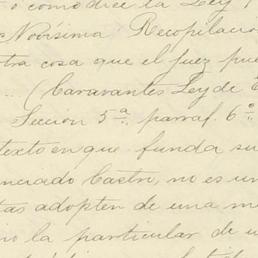 o como dice la Ley
Novísima Recopilacio
tra cosa que el juez pue
(Caravantes Ley de E
Seccion 5ª parraf. 6º
texto en que funda su
enciado Castri, no es un
tas adopten de una m
no la particular de u